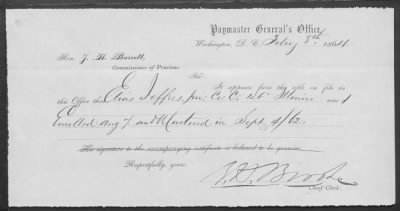 Paymaster General's Office,
Washington, D. C. Feby 8th 1864
Hon. J. H. Barrett,
Commissioner of Pensions
Sir:
It appears from the rolls on file in
this Office that Elias Jeffres, Co. C. Illinois was
Enrolled Aug 7 and Mustered in Sept 4/62.
The signature to the accompanying certificate is believed to be genuine.
Respectfully, yours,
Chief Clerk.